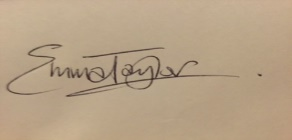 Emma Taylor.